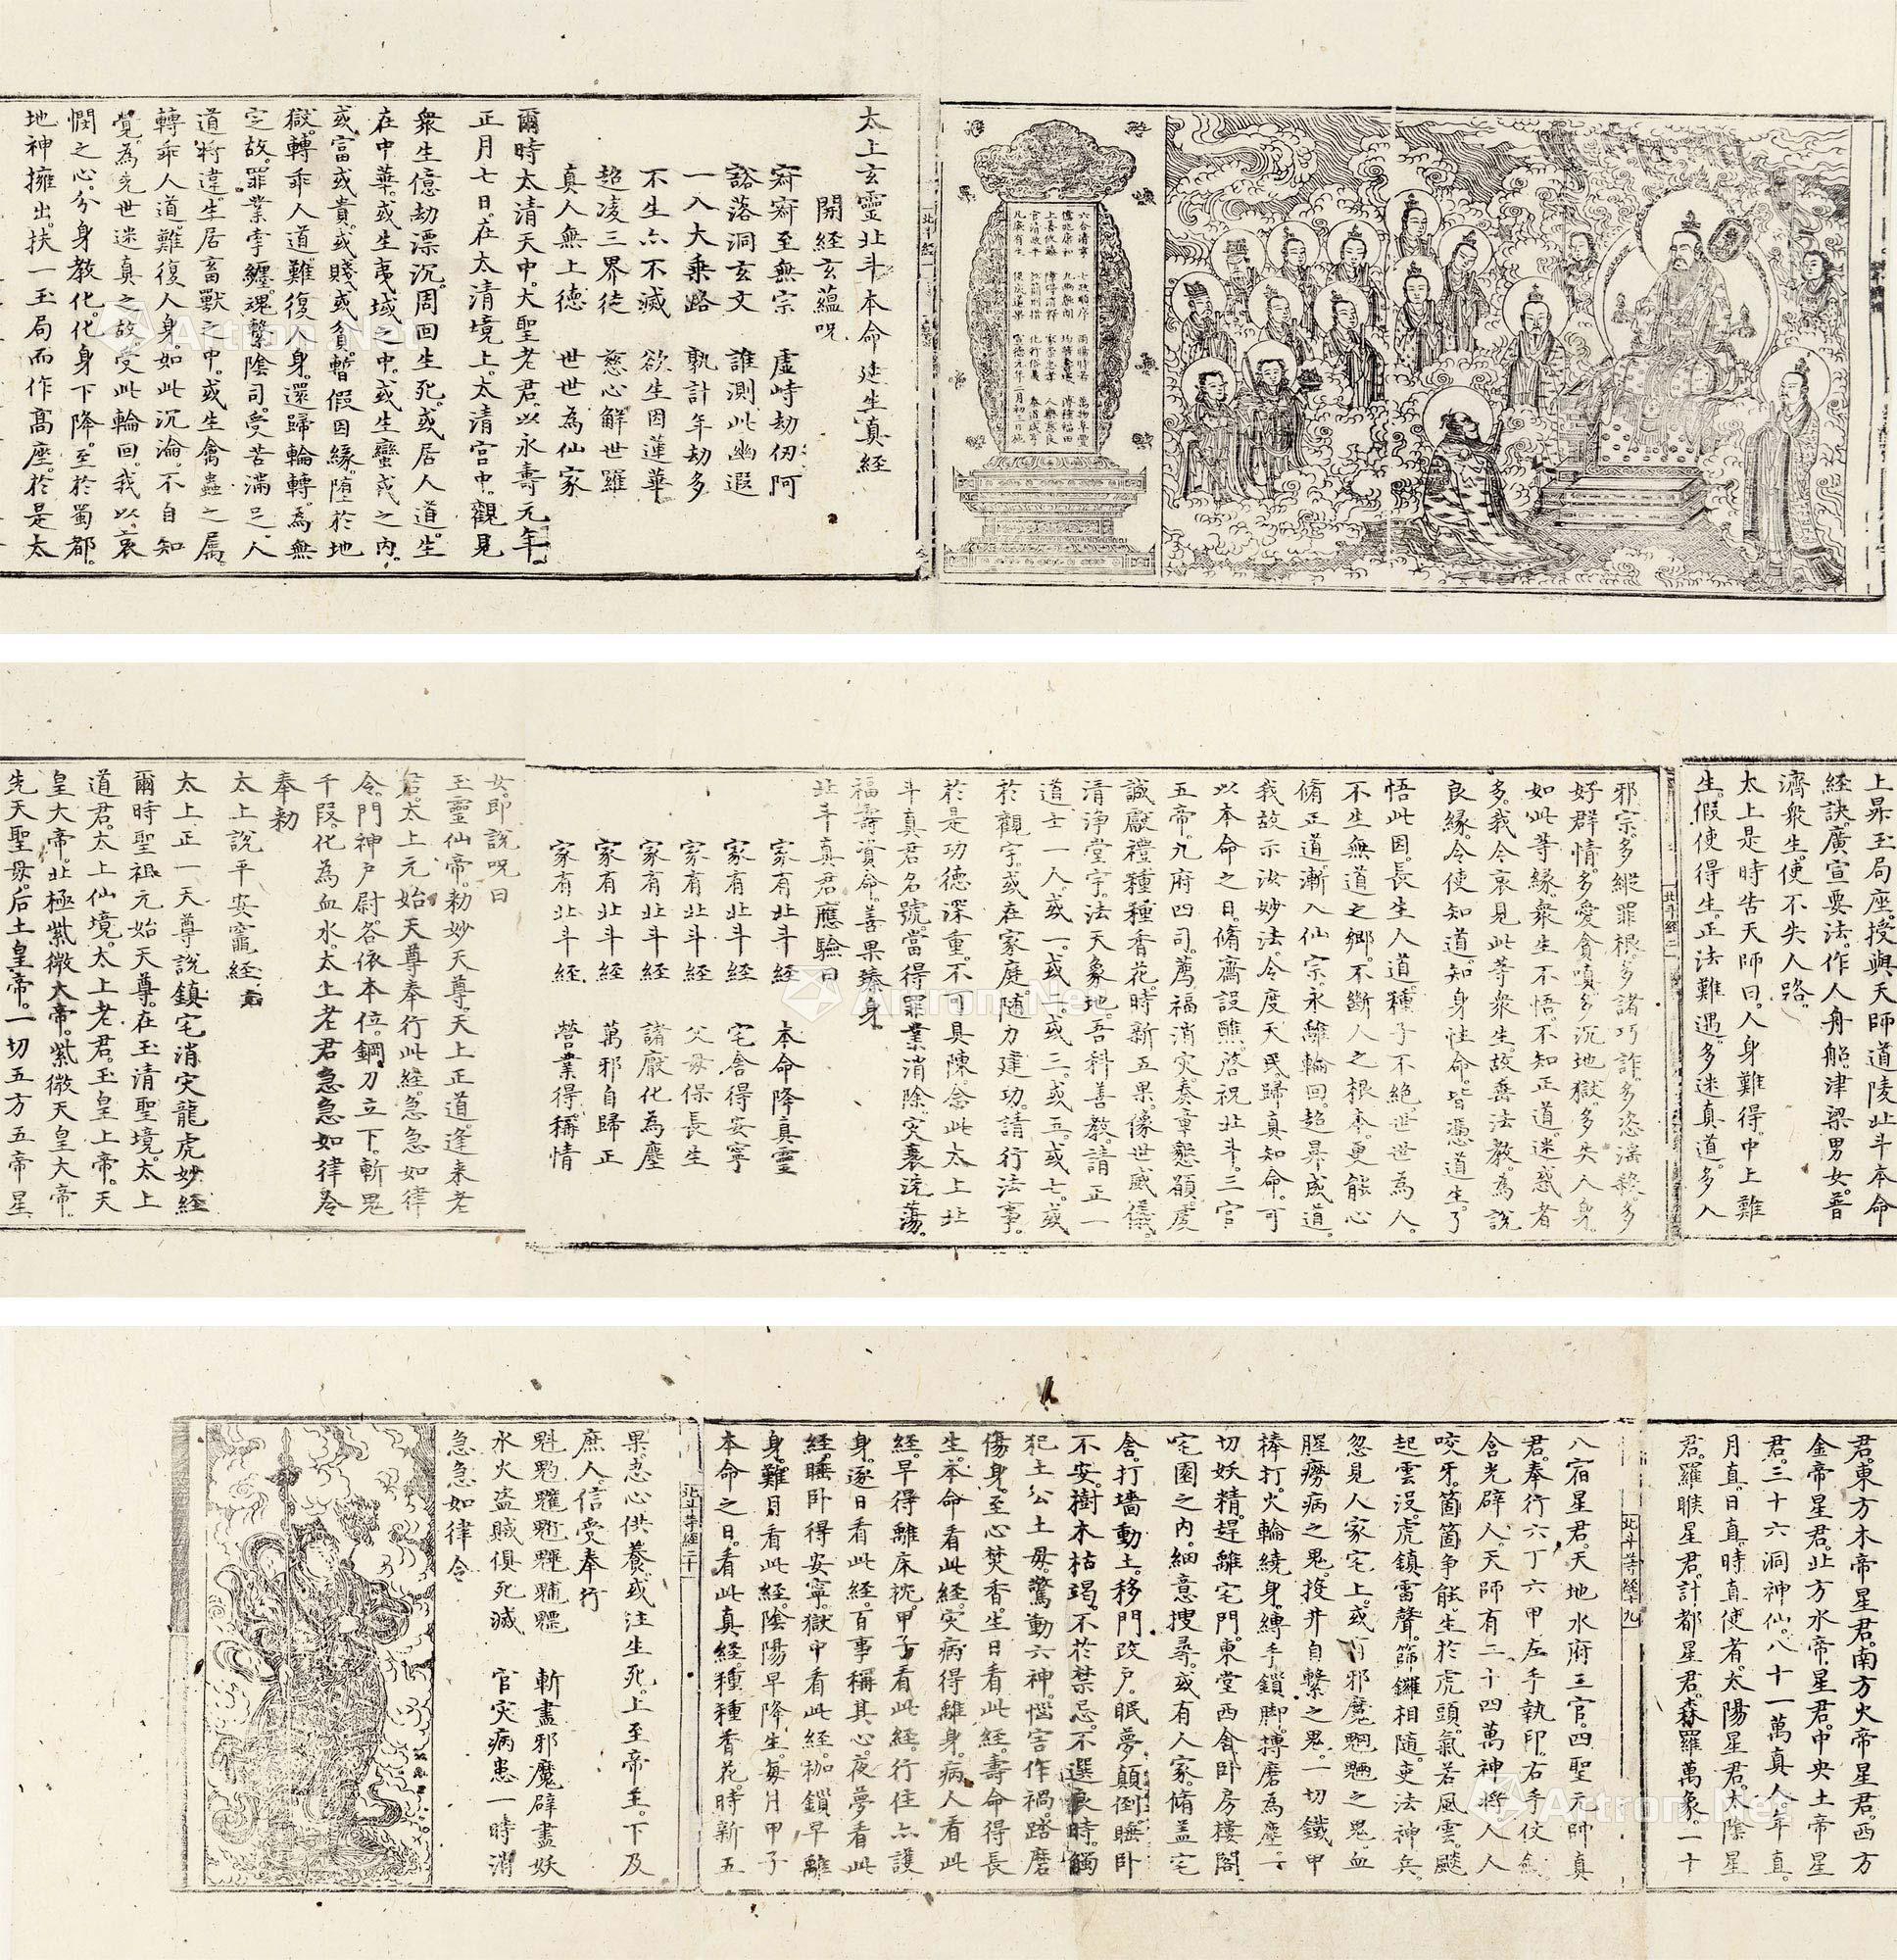 六合清寧　七政順序　雨暘時若　萬物阜豐
官清政平
宣德元年　月初一日施
太上玄靈北斗本命延生真經
開經玄蘊呪
寂寂至無宗　虛峙劫仞阿
豁落洞玄文　誰測此幽遐
一入大乘路　孰計年劫多
不生亦不滅　欲生因蓮華
超凌三界徒　慈心解世羅
真人無上德　世世為仙家
爾時太清天中。大聖老君。以永壽元年。
正月七日。在太清境上。太清宮中。觀見
衆生億劫漂沉。周回生死。或居人道。生
在中華。或生夷域之中。或生蠻戎之內。
或富或貴。或賤或貧。暫假因緣。墮於地
獄。轉乖人道。難復人身。還歸輪轉。為無
定故。罪業牽纏。魂繫陰司。受苦滿足。人
道將違。生居畜獸之中。或生禽蟲之属
轉乖人道。難復人身。如此沉淪。不自知
覺。為先世迷真之故。受此輪回。我以哀
憫之心。分身教化。化身下降。至於蜀都。
地神擁出。扶一玉局而作髙座。於是太
北斗經一
上昇玉局座。授與天師道陵北斗本命
經訣。廣宣要法。作人舟船。津梁男女。普
濟衆生。使不失人路。
太上是時告天師曰。人身難得。中土難
生。假使得生。正法難遇。多迷真道。多入
北斗經二
邪宗。多縱罪根。多諸巧詐。多恣滛殺。多
好群情。多愛貪嗔。多沉地獄。多失人身。
如此等緣。衆生不悟。不知正道。迷惑者
多。我今哀見此等衆生。故垂法教。為說
良緣。令使知道。知身性命。皆憑道生。了
悟此因。長生人道。種子不絕。世世為人。
不生無道之鄉。不斷人之根本。更能心
脩正道。漸入仙宗。永離輪回。超昇成道。
我故示汝妙法。令度天民。歸真知命。可
以本命之日。脩齋設醮。啓祝北斗。三官
五帝。九府四司。薦福消灾。奏章懇願。虔
誠獻禮。種種香花。時新五果。像世威儀。
清淨堂宇。法天象地。吾科善教。請正一
道士一人。或一。或二。或三。或五。或七。或
於觀宇。或在家庭。隨力建功。請行法事。
於是功德深重。不可具陳。念此太上北
斗真君名號。當得罪業消除。灾衰洗蕩。
福壽資命。善果臻身。
北斗真君應驗曰
家有北斗經　本命降真靈
家有北斗經　宅舍得安寧
家有北斗經　父母保長生
家有北斗經　諸厭化為塵
家有北斗經　萬邪自歸正
家有北斗經　營業得稱情
女。即說呪曰
玉靈仙帝。勑妙天尊。天上正道。逢来老
君。太上元始天尊奉行此經。急急如律
令。門神戶尉。各依本位。鋼刀立下。斬鬼
千叚。化為血水。太上老君急急如律令
奉勑
太上說平安竈經竟
太上正一天尊說鎮宅消灾龍虎妙經
爾時聖祖元始天尊。在玉清聖境。太上
道君。太上仙境。太上老君。玉皇上帝。天
皇大帝。北極紫微大帝。紫微天皇大帝。
先天聖母。后土皇帝。一切五方五帝星
君。東方木帝星君。南方火帝星君。西方
金帝星君。北方水帝星君。中央土帝星
君。三十六洞神仙。八十一萬真人。年真。
月真。日真。時真使者。太陽星君。太陰星
君。羅睺星君。計都星君。森羅萬象。二十
北斗等經十九
八宿星君。天地水府三官。四聖元帥真
君。奉行六丁六甲。左手執印。右手仗劍
含光辟人。天師有二十四萬神將。人人
咬牙。箇箇争能。生於虎頭。氣若風雲。颷
起雲没。虎鎮雷聲。篩鑼相随。吏法神兵。
忽見人家宅上。或有邪魔魍魎之鬼。血
腥癆病之鬼。投井自繫之鬼。一切鐵甲
棒打。火輪繞身。縛手鎖脚。搏磨為塵。一
切妖精。趕離宅門。東堂西舍。卧房樓閣。
宅園之內。細意搜尋。或有人家。脩盖宅
舍。打墻動土。移門改戶。眠夢顛倒。睡卧
不安。樹木枯竭。不於禁忌。不選良時。觸
犯土公土母。驚動六神。惱害作禍。路磨
傷身。至心焚香。生日看此經。壽命得長
生。本命看此經。灾病得離身。病人看此
經。早得離床枕。甲子看此經。行住亦護
身。逐日看此經。百事稱其心。夜夢看此
經。睡卧得安寧。獄中看此經。枷鎖早離
身。難月看此經。陰陽早降生。每月甲子
本命之日。看此真經。種種香花。時新五
北斗等經二十
果。志心供養。或注生死。上至帝王。下及
庶人。信受奉行
斬盡邪魔辟盡妖
水火盗賊俱死滅　官灾病患一時消
急急如律令